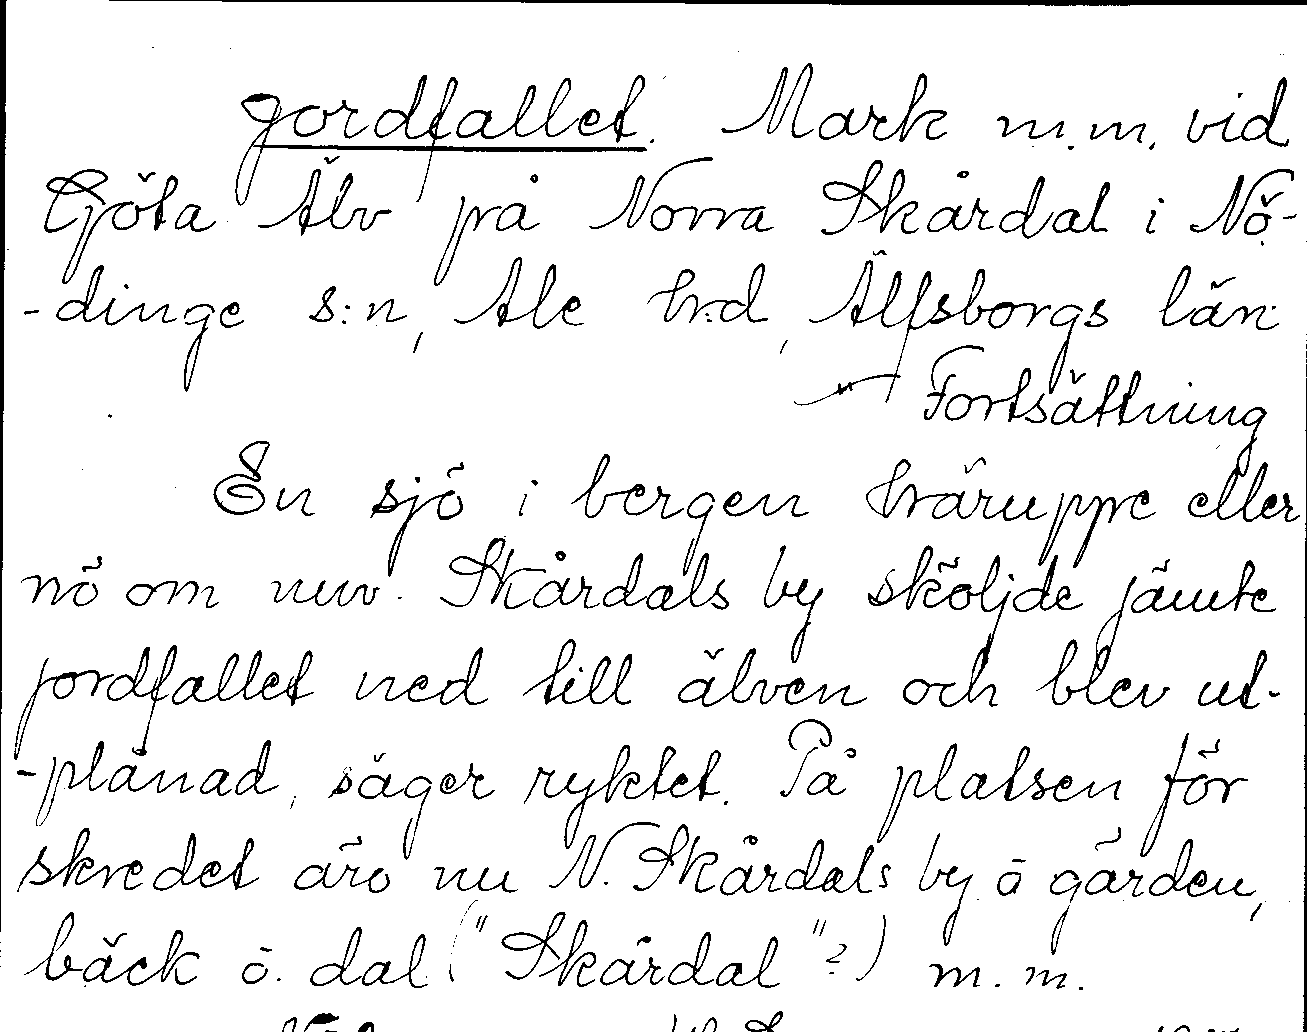 Jordfallet. Mark m.m. vid
Göta Älv på Norra Skårdal i Nö-
-dinge s:n, Ale hrd, Älfsborgs län.
Fortsättning
En sjö i bergen häruppe eller
nö om nuv. Skårdals by sköljde jämte
jordfallet ned till älven och blev ut-
-plånad, säger ryktet. På platsen för
skredet äro nu N. Skårdals by o gärden,
bäck o. dal ("Skårdal"?) m. m.